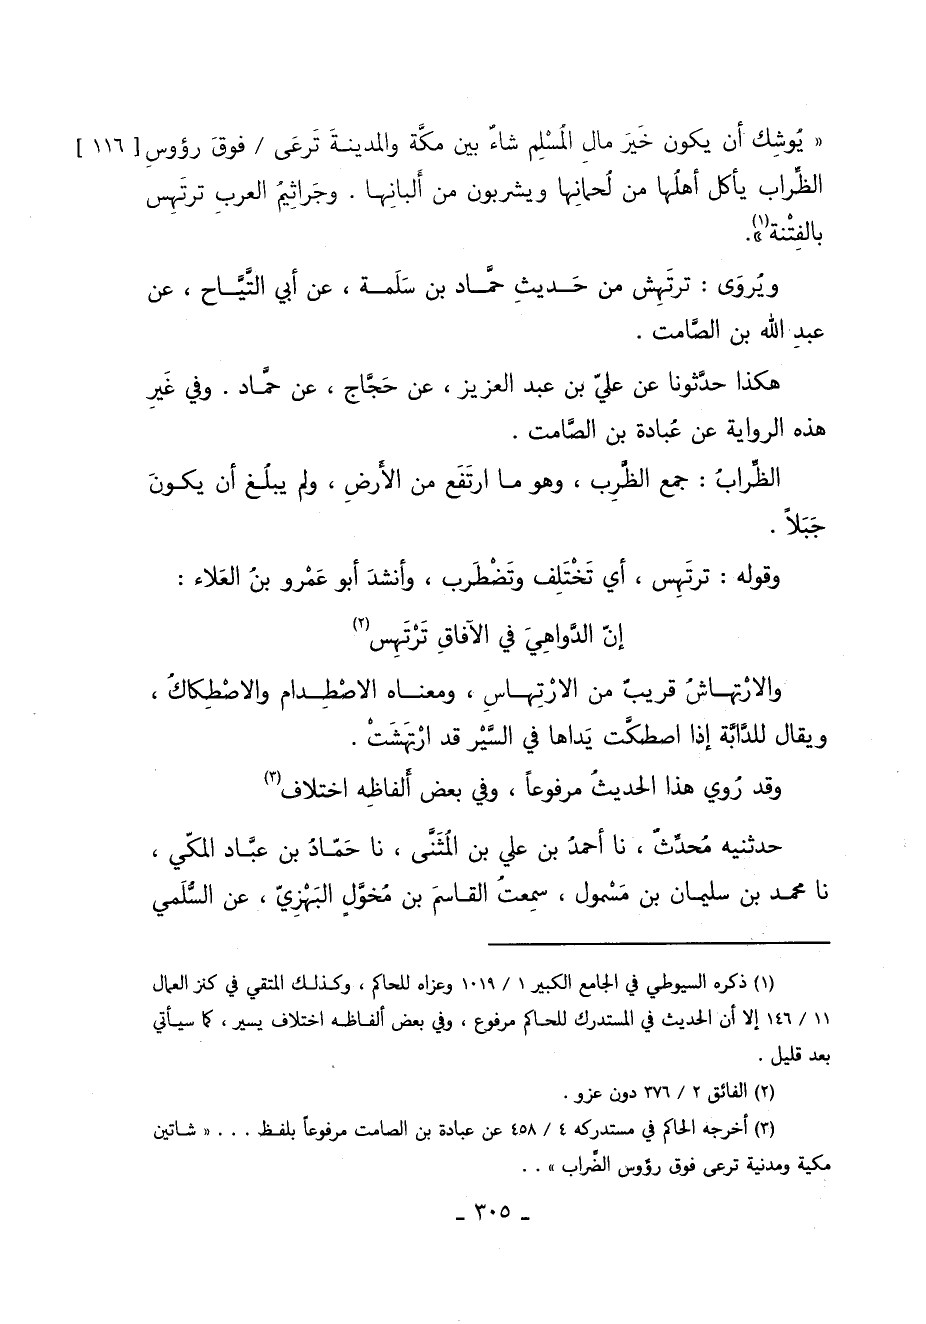 « يُوشِك أن يكون خَيرَ مالِ المُسْلِم شاءٌ بين مكَّة والمدينةَ تَرعَى / فوقَ رؤوسِ [ ١١٦ ]
الظِّراب يأكل أهلُها من لُحمانِها ويشربون من أَلبانِها . وجَراثِيمُ العربِ ترتَهِس
بالفِتْنة(١)».
ويُروَى : ترتَهِش من حَديثِ حمَّاد بن سَلَمة ، عن أبي التَّيَّاح ، عن
عبدِ الله بن الصَّامت .
هكذا حدَّثونا عن عليّ بن عبد العزيز ، عن حَجَّاج ، عن حمَّاد . وفي غَيرِ
هذه الرواية عن عُبادة بن الصَّامت .
الظِّرابُ : جمع الظَّرِب ، وهو ما ارتَفَع من الأَرضِ ، ولم يبلُغ أن يكونَ
جَبَلاً .
وقوله : ترتَهِس ، أي تَخْتَلِف وتَضْطَرِب ، وأنشدَ أبو عَمْرو بنُ العَلاء :
إنّ الدَّواهِيَ في الآفاقِ تَرْتَهِس(٢)
والارْتِهاشُ قريبٌ من الارْتِهاسِ ، ومعناه الاصْطِدام والاصْطِكاكُ ،
ويقال للدَّابَّة إذا اصطكَّت يَداها في السَّيْر قد ارْتَهَشَتْ .
وقد رُوي هذا الحديثُ مرفوعاً ، وفي بعض أَلفاظِه اختلاف(٣)
حدثنيه مُحدِّثٌ ، نا أحمدُ بن علي بن المُثَنَّى ، نا حَمّادُ بن عبَّاد المكّي ،
نا محمد بن سليمان بن مَسْمول ، سمِعتُ القاسمَ بن مُخَوَّلٍ البَهْزِيّ ، عن السُّلَمي
(١) ذكره السيوطي في الجامع الكبير ١ / ١٠١٩ وعزاه للحاكم ، وكذلك المتقي في كنز العمال
١١ / ١٤٦ إلا أن الحديث في المستدرك للحاكم مرفوع ، وفي بعض ألفاظه اختلاف يسير ، كما سيأتي
بعد قليل .
(٢) الفائق ٢ / ٣٧٦ دون عزو .
(٣) أخرجه الحاكم في مستدركه ٤ / ٤٥٨ عن عبادة بن الصامت مرفوعاً بلفظ . . . « شاتين
مكية ومدنية ترعى فوق رؤوس الضِّراب » . .
ـ ٣٠٥ ـ